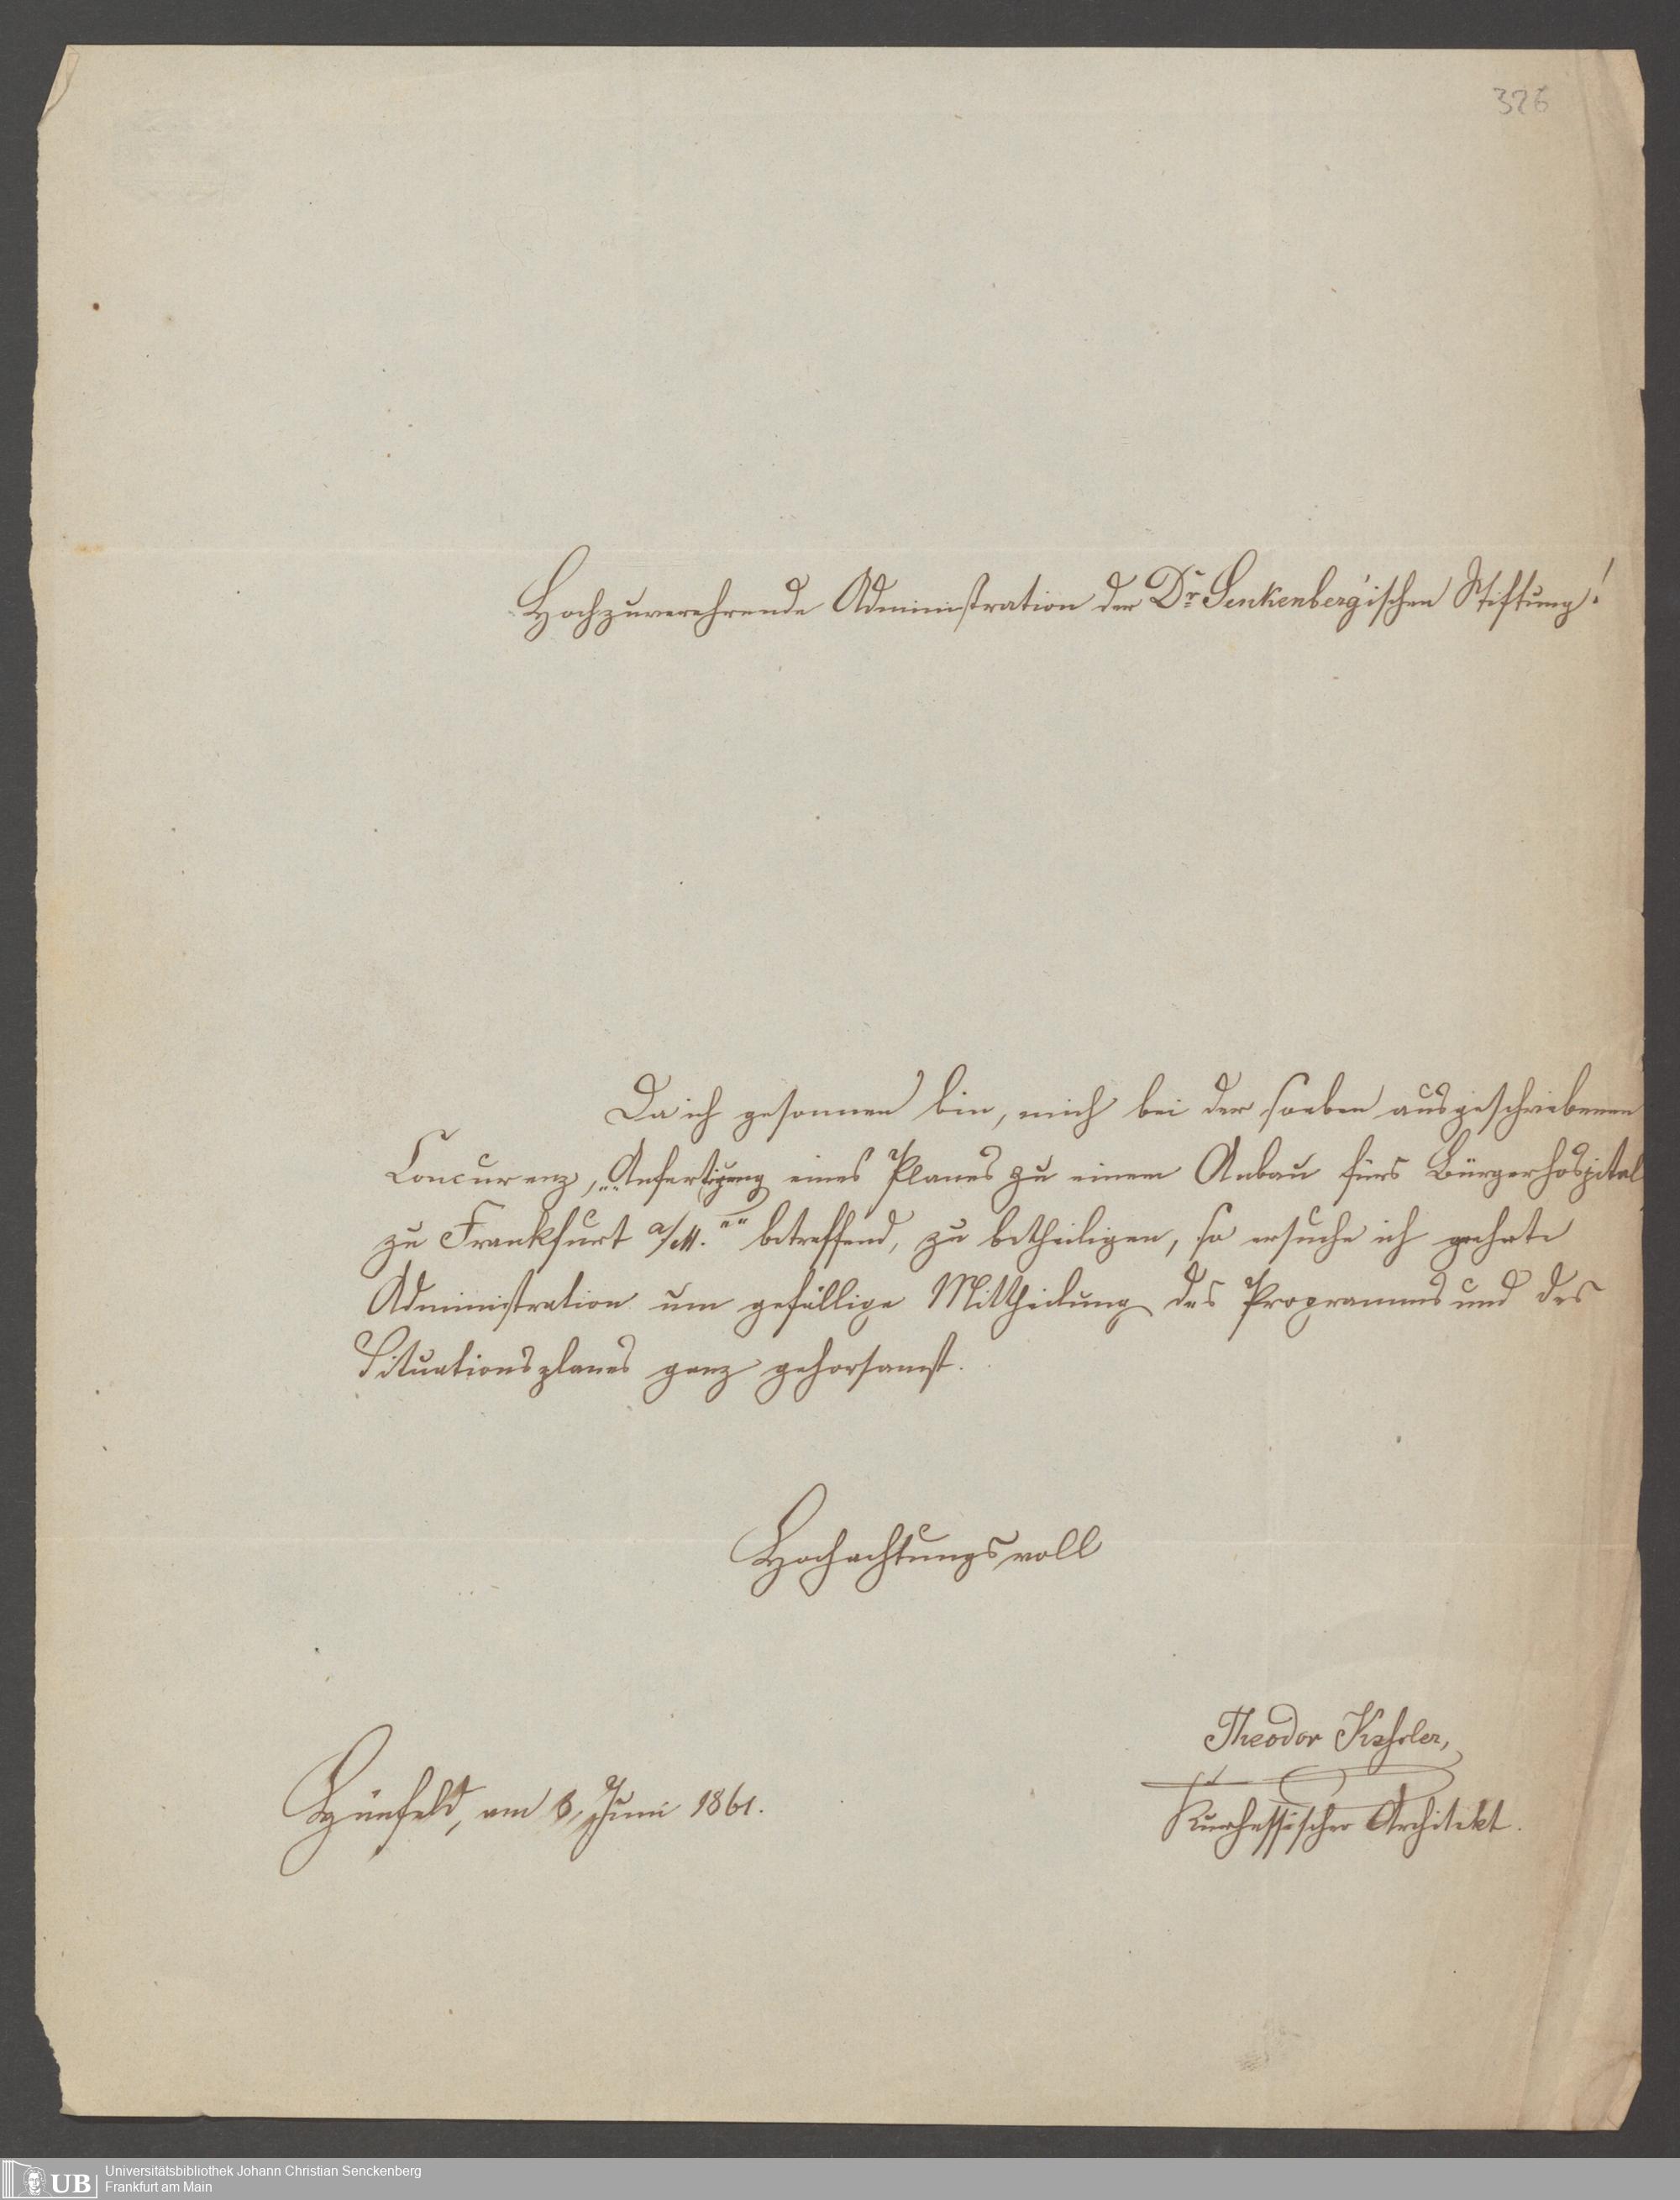 326
Hochzuverehrende Administration der Dr. Senkenberg'ischen Stiftung!
Da ich gesonnen bin, mich bei der soeben ausgeschriebenen
Concurenz, „„Anfertigung eines Planes zu einem Anbau fürs Bürgerhospital
zu Frankfurt a/M."" betreffend, zu betheiligen, so ersuche ich geehrte
Administration um gefällige Mittheilung des Programms und des
Situationsplanes ganz gehorsamst.
Hochachtungsvoll
Theodor Kessler,
Hünfeld, am 8. Juni 1861.
Kurhessischer Architekt.
UB
Universitätsbibliothek Johann Christian Senckenberg
Frankfurt am Main